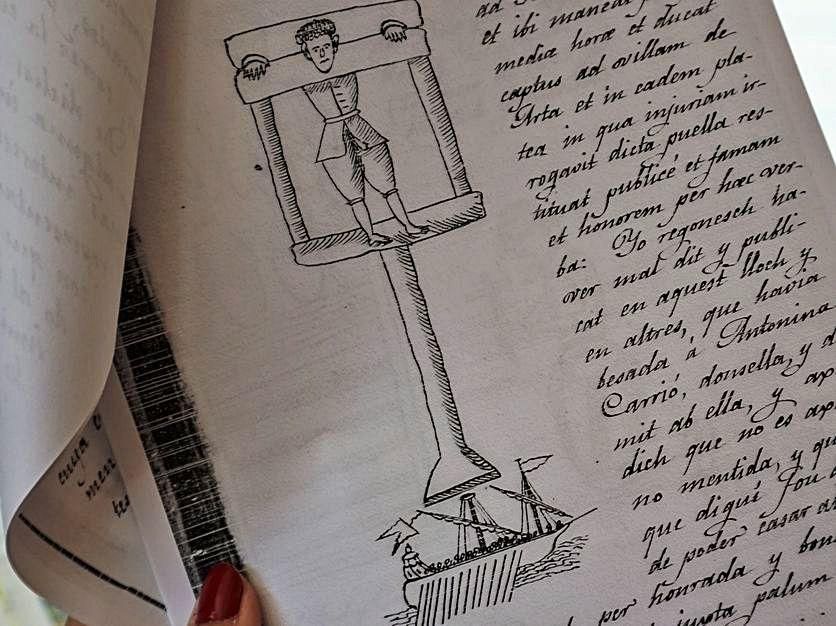 ad
et ibi maneat
mediæ horæ et ducat
captus ad villam de
Arta et in eadem pla-
tea in qua injuriam ir-
rogavit dicta puella res-
tituat publicé et famam
et honorem per hæc ver-
ba: Yo regonesch ha-
ver mal dit y publi-
cat en aquest lloch y
en altres, que havia
besada á Antonina
Carrió, donsella, y
mit ab ella, y
dich que no es
no mentida, y
que digué fou
de poder casar
per honrada y
juxta palum